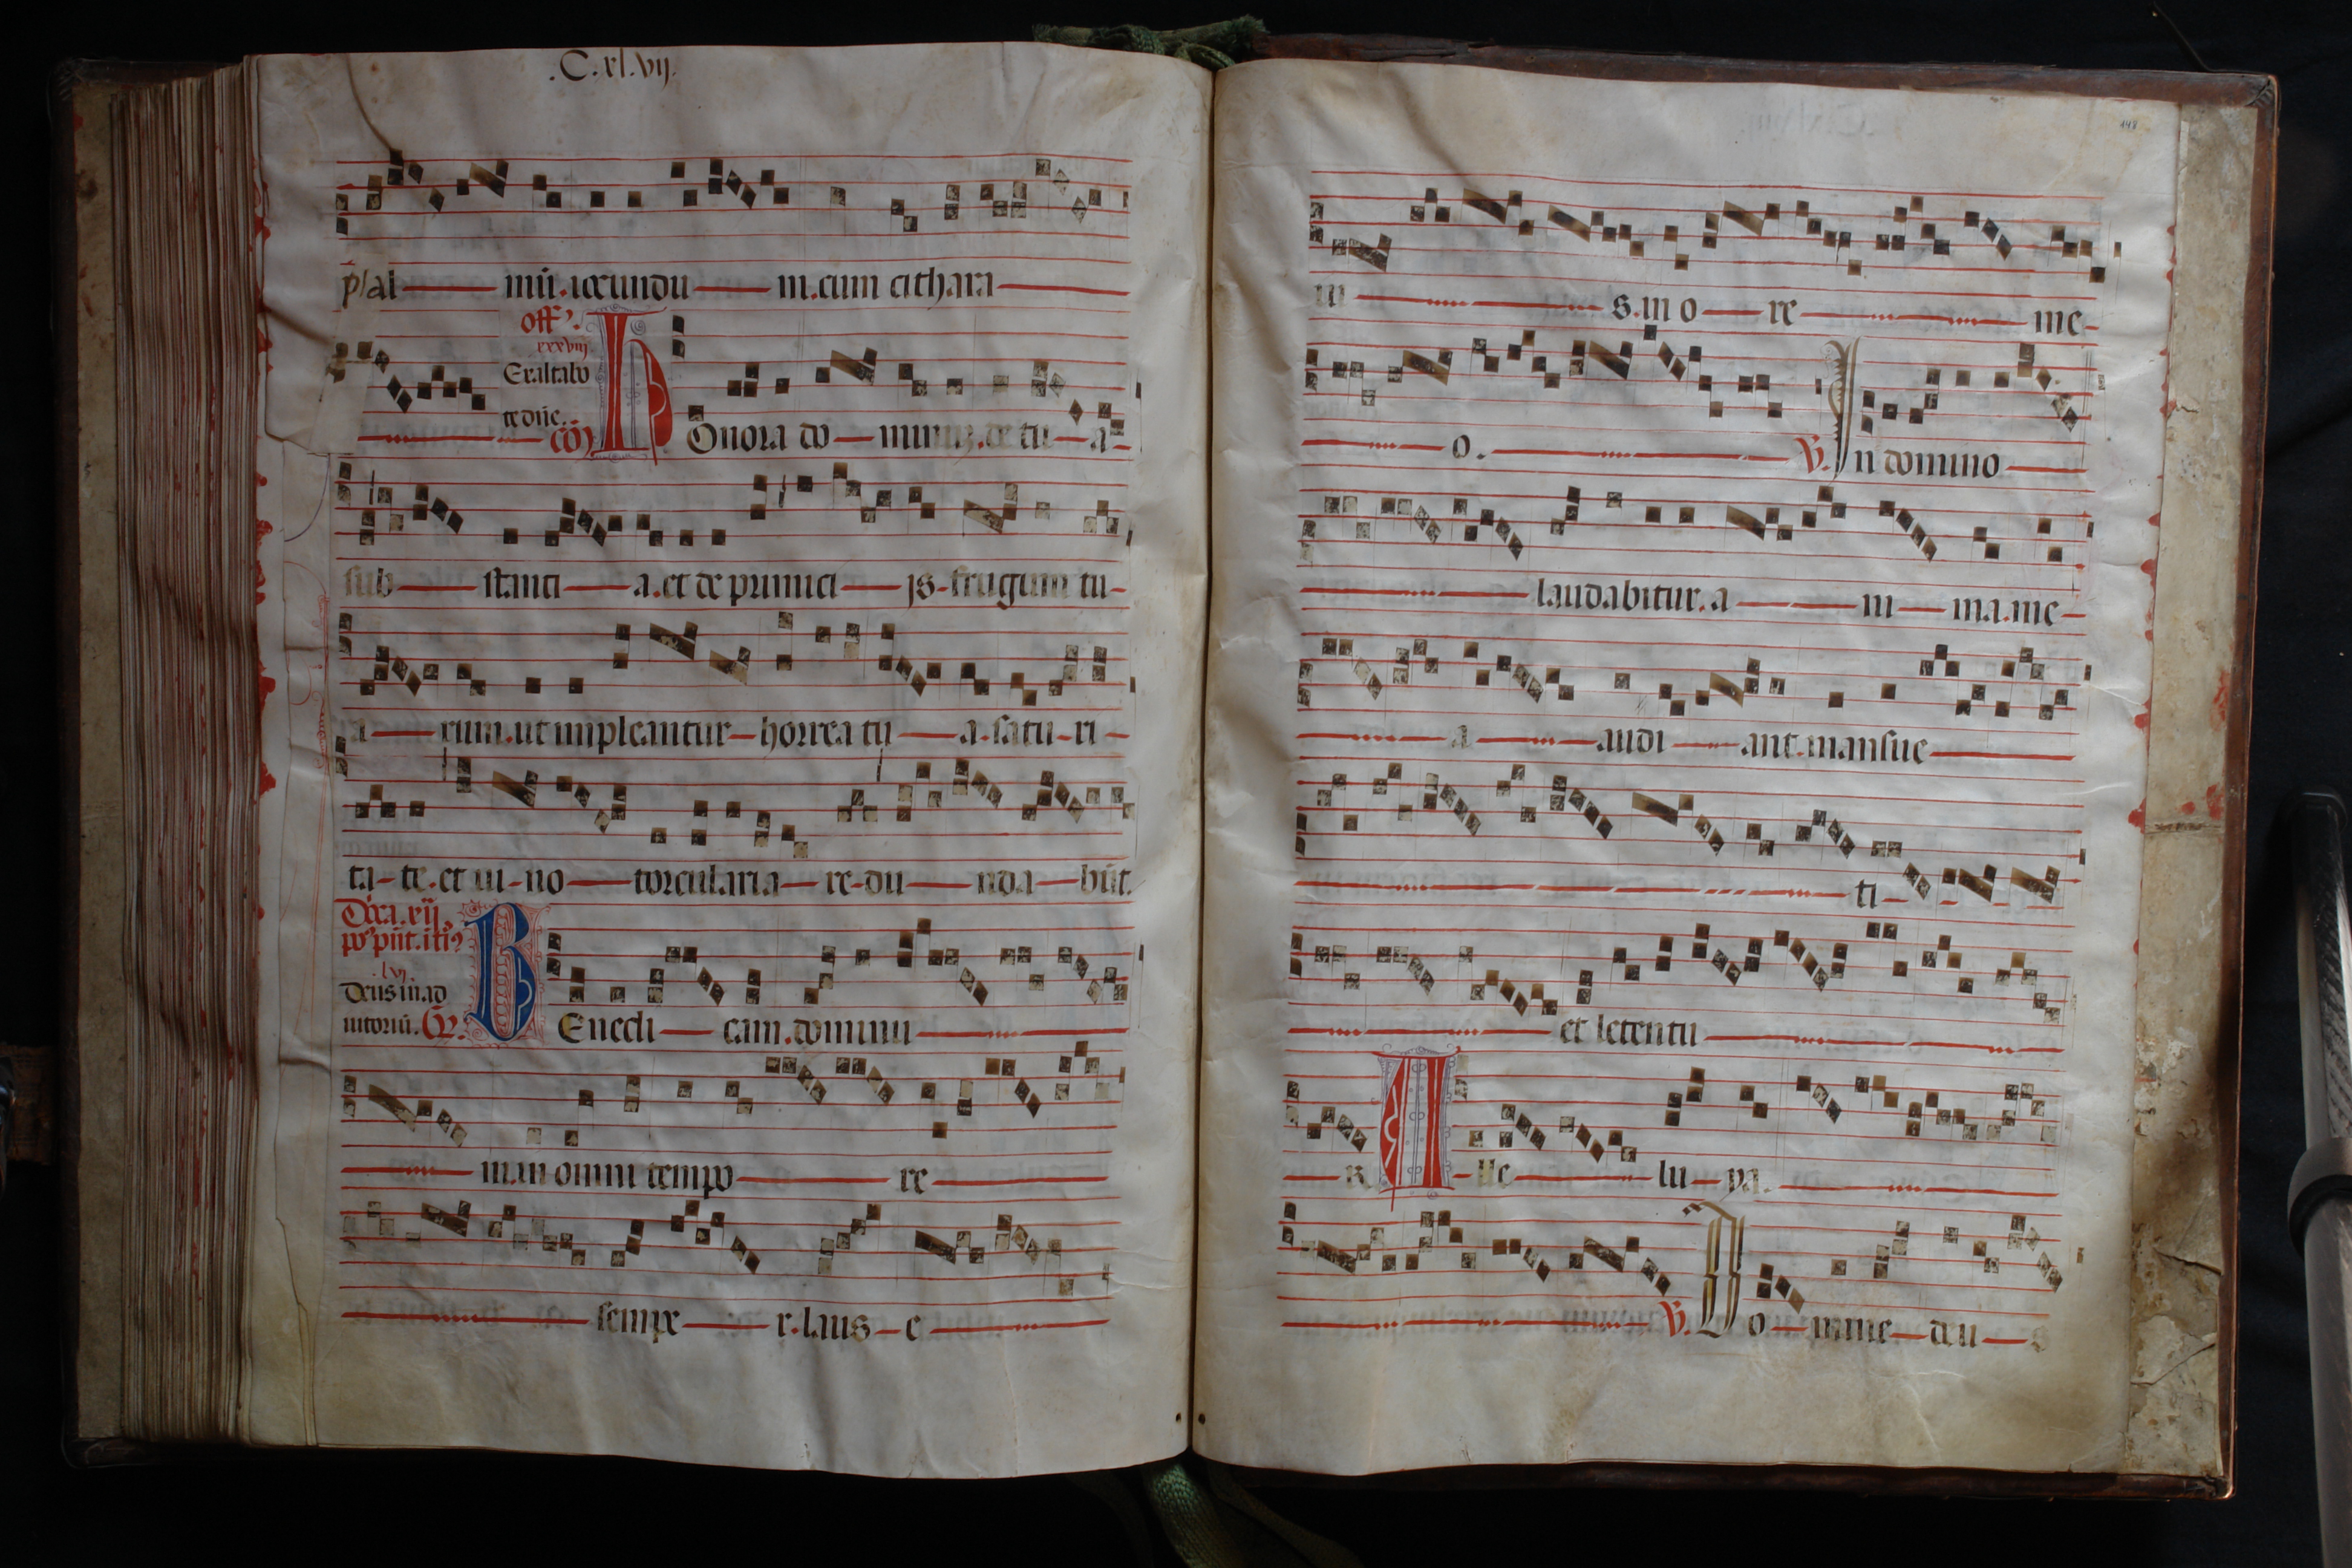 .C.xl.vij.
psal mū.iocundu m.cum cithara
off᷒.
xxxviij
Exaltabo
te dn̄e.
cō᷒
HOnora do minuz.de tu a
sub stanci a.et de primici js.frugum tu
a rum.ut impleantur horrea tu a.satu ri
ta te.et ui no torcularia re du nda būt.
Dn̄ca.xij
.lvj.
Deus in ad
iutoriū.
BEnedi cam.dominu
m.in omni tempo re
sempe r.laus e
148
iu s.in o re me
o. V. In domino
laudabitur.a ni ma.me
a audi ant.mansue
ti
et letentu
R ALle lu ya.
V. Do mine deu s